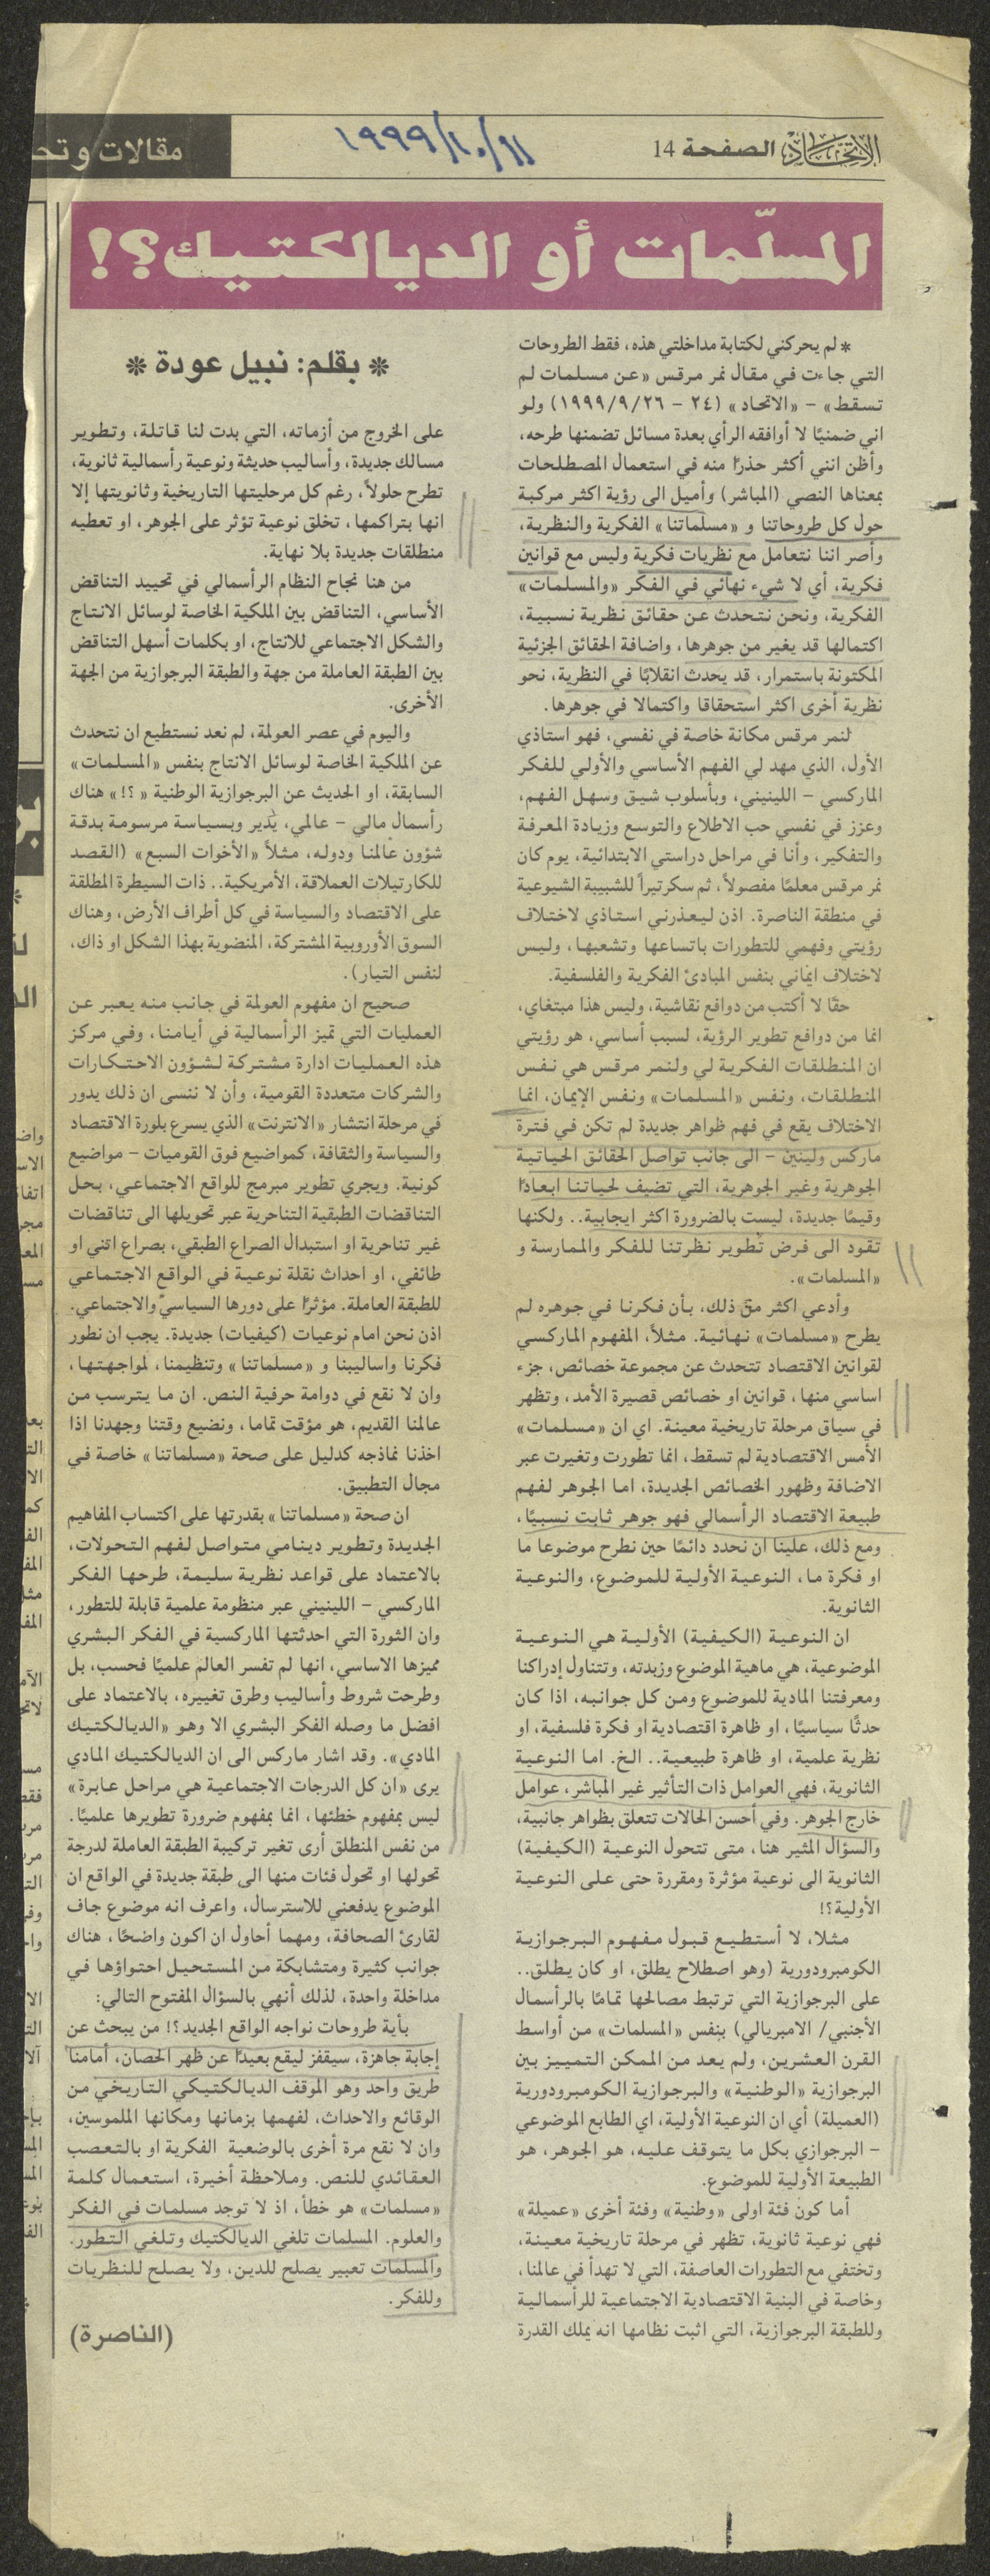 الاتحاد الصفحة 14
١٩٩٩/١٠/١١
مقالات وتحـ
المسلّمات أو الديالكتيك؟!
* بقلم: نبيل عودة *
* لم يحركني لكتابة مداخلتي هذه، فقط الطروحات
التي جاءت في مقال نمر مرقس «عن مسلمات لم
تسقط» - «الاتحاد» (٢٤ - ١٩٩٩/٩/٢٦) ولو
اني ضمنيًا لا أوافقه الرأي بعدة مسائل تضمنها طرحه،
وأظن انني أكثر حذرًا منه في استعمال المصطلحات
بمعناها النصي (المباشر) وأميل الى رؤية اكثر مركبة
حول كل طروحاتنا و «مسلماتنا» الفكرية والنظرية،
وأصر اننا نتعامل مع نظريات فكرية وليس مع قوانين
فكرية، أي لا شيء نهائي في الفكر «والمسلمات»
الفكرية، ونحن نتحدث عن حقائق نظرية نسبية،
اكتمالها قد يغير من جوهرها، واضافة الحقائق الجزئية
المكتونة باستمرار، قد يحدث انقلابًا في النظرية، نحو
نظرية أخرى اكثر استحقاقا واكتمالا في جوهرها.
لنمر مرقس مكانة خاصة في نفسي، فهو استاذي
الأول، الذي مهد لي الفهم الأساسي والأولي للفكر
الماركسي - اللينيني، وبأسلوب شيق وسهل الفهم،
وعزز في نفسي حب الاطلاع والتوسع وزيادة المعرفة
والتفكير، وأنا في مراحل دراستي الابتدائية، يوم كان
نمر مرقس معلمًا مفصولاً، ثم سكرتيراً للشبيبة الشيوعية
في منطقة الناصرة. اذن ليعذرني استاذي لاختلاف
رؤيتي وفهمي للتطورات باتساعها وتشعبها، وليس
لاختلاف ايماني بنفس المبادئ الفكرية والفلسفية.
حقًا لا أكتب من دوافع نقاشية، وليس هذا مبتغاي،
انما من دوافع تطوير الرؤية، لسبب أساسي، هو رؤيتي
ان المنطلقات الفكرية لي ولنمر مرقس هي نفس
المنطلقات، ونفس «المسلمات» ونفس الإيمان، انما
الاختلاف يقع في فهم ظواهر جديدة لم تكن في فترة
ماركس ولينين - الى جانب تواصل الحقائق الحياتية
الجوهرية وغير الجوهرية، التي تضيف لحياتنا ابعادًا
وقيمًا جديدة، ليست بالضرورة اكثر ايجابية.. ولكنها
تقود الى فرض تطوير نظرتنا للفكر والممارسة و
«المسلمات».
وأدعي اكثر من ذلك، بأن فكرنا في جوهره لم
يطرح «مسلمات» نهائية. مثلاً، المفهوم الماركسي
لقوانين الاقتصاد تتحدث عن مجموعة خصائص، جزء
اساسي منها، قوانين او خصائص قصيرة الأمد، وتظهر
في سياق مرحلة تاريخية معينة. اي ان «مسلمات»
الأمس الاقتصادية لم تسقط، انما تطورت وتغيرت عبر
الاضافة وظهور الخصائص الجديدة، اما الجوهر لفهم
طبيعة الاقتصاد الرأسمالي فهو جوهر ثابت نسبيًا،
ومع ذلك، علينا ان نحدد دائمًا حين نطرح موضوعا ما
او فكرة ما، النوعية الأولية للموضوع، والنوعية
الثانوية.
ان النوعية (الكيفية) الأولية هي النوعية
الموضوعية، هي ماهية الموضوع وزبدته، وتتناول إدراكنا
ومعرفتنا المادية للموضوع ومن كل جوانبه، اذا كان
حدثًا سياسيًا، او ظاهرة اقتصادية او فكرة فلسفية، او
نظرية علمية، او ظاهرة طبيعية.. الخ. اما النوعية
الثانوية، فهي العوامل ذات التأثير غير المباشر، عوامل
خارج الجوهر. وفي أحسن الحالات تتعلق بظواهر جانبية،
والسؤال المثير هنا، متى تتحول النوعية (الكيفية)
الثانوية الى نوعية مؤثرة ومقررة حتى على النوعية
الأولية؟!
مثلا، لا أستطيع قبول مفهوم البرجوازية
الكومبرودورية (وهو اصطلاح يطلق، او كان يطلق..
على البرجوازية التي ترتبط مصالحها تمامًا بالرأسمال
الأجنبي/ الامبريالي) بنفس «المسلمات» من أواسط
القرن العشرين، ولم يعد من الممكن التمييز بين
البرجوازية «الوطنية» والبرجوازية الكومبرودورية
(العميلة) أي ان النوعية الأولية، اي الطابع الموضوعي
- البرجوازي بكل ما يتوقف عليه، هو الجوهر، هو
الطبيعة الأولية للموضوع.
أما كون فئة اولى «وطنية» وفئة أخرى «عميلة»
فهي نوعية ثانوية، تظهر في مرحلة تاريخية معينة،
وتختفي مع التطورات العاصفة، التي لا تهدأ في عالمنا،
وخاصة في البنية الاقتصادية الاجتماعية للرأسمالية
وللطبقة البرجوازية، التي اثبت نظامها انه يملك القدرة
على الخروج من أزماته، التي بدت لنا قاتلة، وتطوير
مسالك جديدة، وأساليب حديثة ونوعية رأسمالية ثانوية،
تطرح حلولاً، رغم كل مرحليتها التاريخية وثانويتها إلا
انها بتراكمها، تخلق نوعية تؤثر على الجوهر، او تعطيه
منطلقات جديدة بلا نهاية.
من هنا نجاح النظام الرأسمالي في تحييد التناقض
الأساسي، التناقض بين الملكية الخاصة لوسائل الانتاج
والشكل الاجتماعي للانتاج، او بكلمات أسهل التناقض
بين الطبقة العاملة من جهة والطبقة البرجوازية من الجهة
الأخرى.
واليوم في عصر العولمة، لم نعد نستطيع ان نتحدث
عن الملكية الخاصة لوسائل الانتاج بنفس «المسلمات»
السابقة، او الحديث عن البرجوازية الوطنية «؟!» هناك
رأسمال مالي - عالمي، يُدير وبسياسة مرسومة بدقة
شؤون عالمنا ودوله، مثلاً «الأخوات السبع» (القصد
للكارتيلات العملاقة، الأمريكية.. ذات السيطرة المطلقة
على الاقتصاد والسياسة في كل أطراف الأرض، وهناك
السوق الأوروبية المشتركة، المنضوية بهذا الشكل او ذاك،
لنفس التيار).
صحيح ان مفهوم العولمة في جانب منه يعبر عن
العمليات التي تميز الرأسمالية في أيامنا، وفي مركز
هذه العمليات ادارة مشتركة لشؤون الاحتكارات
والشركات متعددة القومية، وأن لا ننسى ان ذلك يدور
في مرحلة انتشار «الانترنت» الذي يسرع بلورة الاقتصاد
والسياسة والثقافة، كمواضيع فوق القوميات - مواضيع
كونية. ويجري تطوير مبرمج للواقع الاجتماعي، بحل
التناقضات الطبقية التناحرية عبر تحويلها الى تناقضات
غير تناحرية او استبدال الصراع الطبقي، بصراع اثني او
طائفي، او احداث نقلة نوعية في الواقع الاجتماعي
للطبقة العاملة. مؤثرًا على دورها السياسي والاجتماعي.
اذن نحن امام نوعيات (كيفيات) جديدة. يجب ان نطور
فكرنا واساليبنا و «مسلماتنا» وتنظيمنا، لمواجهتها،
وان لا نقع في دوامة حرفية النص. ان ما يترسب من
عالمنا القديم، هو مؤقت تماما، ونضيع وقتنا وجهدنا اذا
اخذنا نماذجه كدليل على صحة «مسلماتنا» خاصة في
مجال التطبيق.
ان صحة «مسلماتنا» بقدرتها على اكتساب المفاهيم
الجديدة وتطوير دينامي متواصل لفهم التحولات،
بالاعتماد على قواعد نظرية سليمة، طرحها الفكر
الماركسي - اللينيني عبر منظومة علمية قابلة للتطور،
وان الثورة التي احدثتها الماركسية في الفكر البشري
مميزها الاساسي، انها لم تفسر العالم علميًا فحسب، بل
وطرحت شروط وأساليب وطرق تغييره، بالاعتماد على
افضل ما وصله الفكر البشري الا وهو «الديالكتيك
المادي». وقد اشار ماركس الى ان الديالكتيك المادي
يرى «ان كل الدرجات الاجتماعية هي مراحل عابرة»
ليس بمفهوم خطئها، انما بمفهوم ضرورة تطويرها علميًا.
من نفس المنطلق أرى تغير تركيبة الطبقة العاملة لدرجة
تحولها او تحول فئات منها الى طبقة جديدة في الواقع ان
الموضوع يدفعني للاسترسال، واعرف انه موضوع جاف
لقارئ الصحافة، ومهما أحاول ان اكون واضحًا، هناك
جوانب كثيرة ومتشابكة من المستحيل احتواؤها في
مداخلة واحدة، لذلك أنهي بالسؤال المفتوح التالي:
بأية طروحات نواجه الواقع الجديد؟! من يبحث عن
إجابة جاهزة، سيقفز ليقع بعيدًا عن ظهر الحصان، أمامنا
طريق واحد وهو الموقف الديالكتيكي التاريخي من
الوقائع والاحداث، لفهمها بزمانها ومكانها الملموسين،
وان لا نقع مرة أخرى بالوضعية الفكرية او بالتعصب
العقائدي للنص. وملاحظة أخيرة، استعمال كلمة
«مسلمات» هو خطأ، اذ لا توجد مسلمات في الفكر
والعلوم. المسلمات تلغي الديالكتيك وتلغي التطور.
والمسلمات تعبير يصلح للدين، ولا يصلح للنظريات
وللفكر.
(الناصرة)